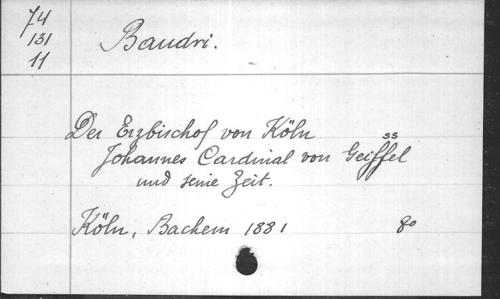 74
131
11
Baudri.
Der Erzbischof von Köln
ss
Johannes Cardinal von Geiffel
und seine Zeit.
Köln, Bachem 1881 8o